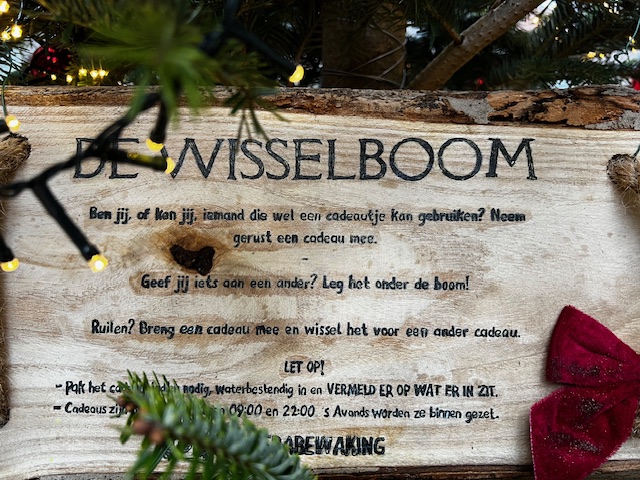 DE WISSELBOOM
Ben jij, of kan jij, iemand die wel een cadeautje kan gebruiken? Neem
gerust een cadeau mee.
-
Geef jij iets aan een ander? Leg het onder de boom!
Ruilen? Breng een cadeau mee en wissel het voor een ander cadeau.
LET OP!
- Pak het nodig, waterbestendig in en VERMELD ER OP WAT ER IN ZIT.
- Cadeaus 09:00 en 22:00 's Avonds worden ze binnen gezet.